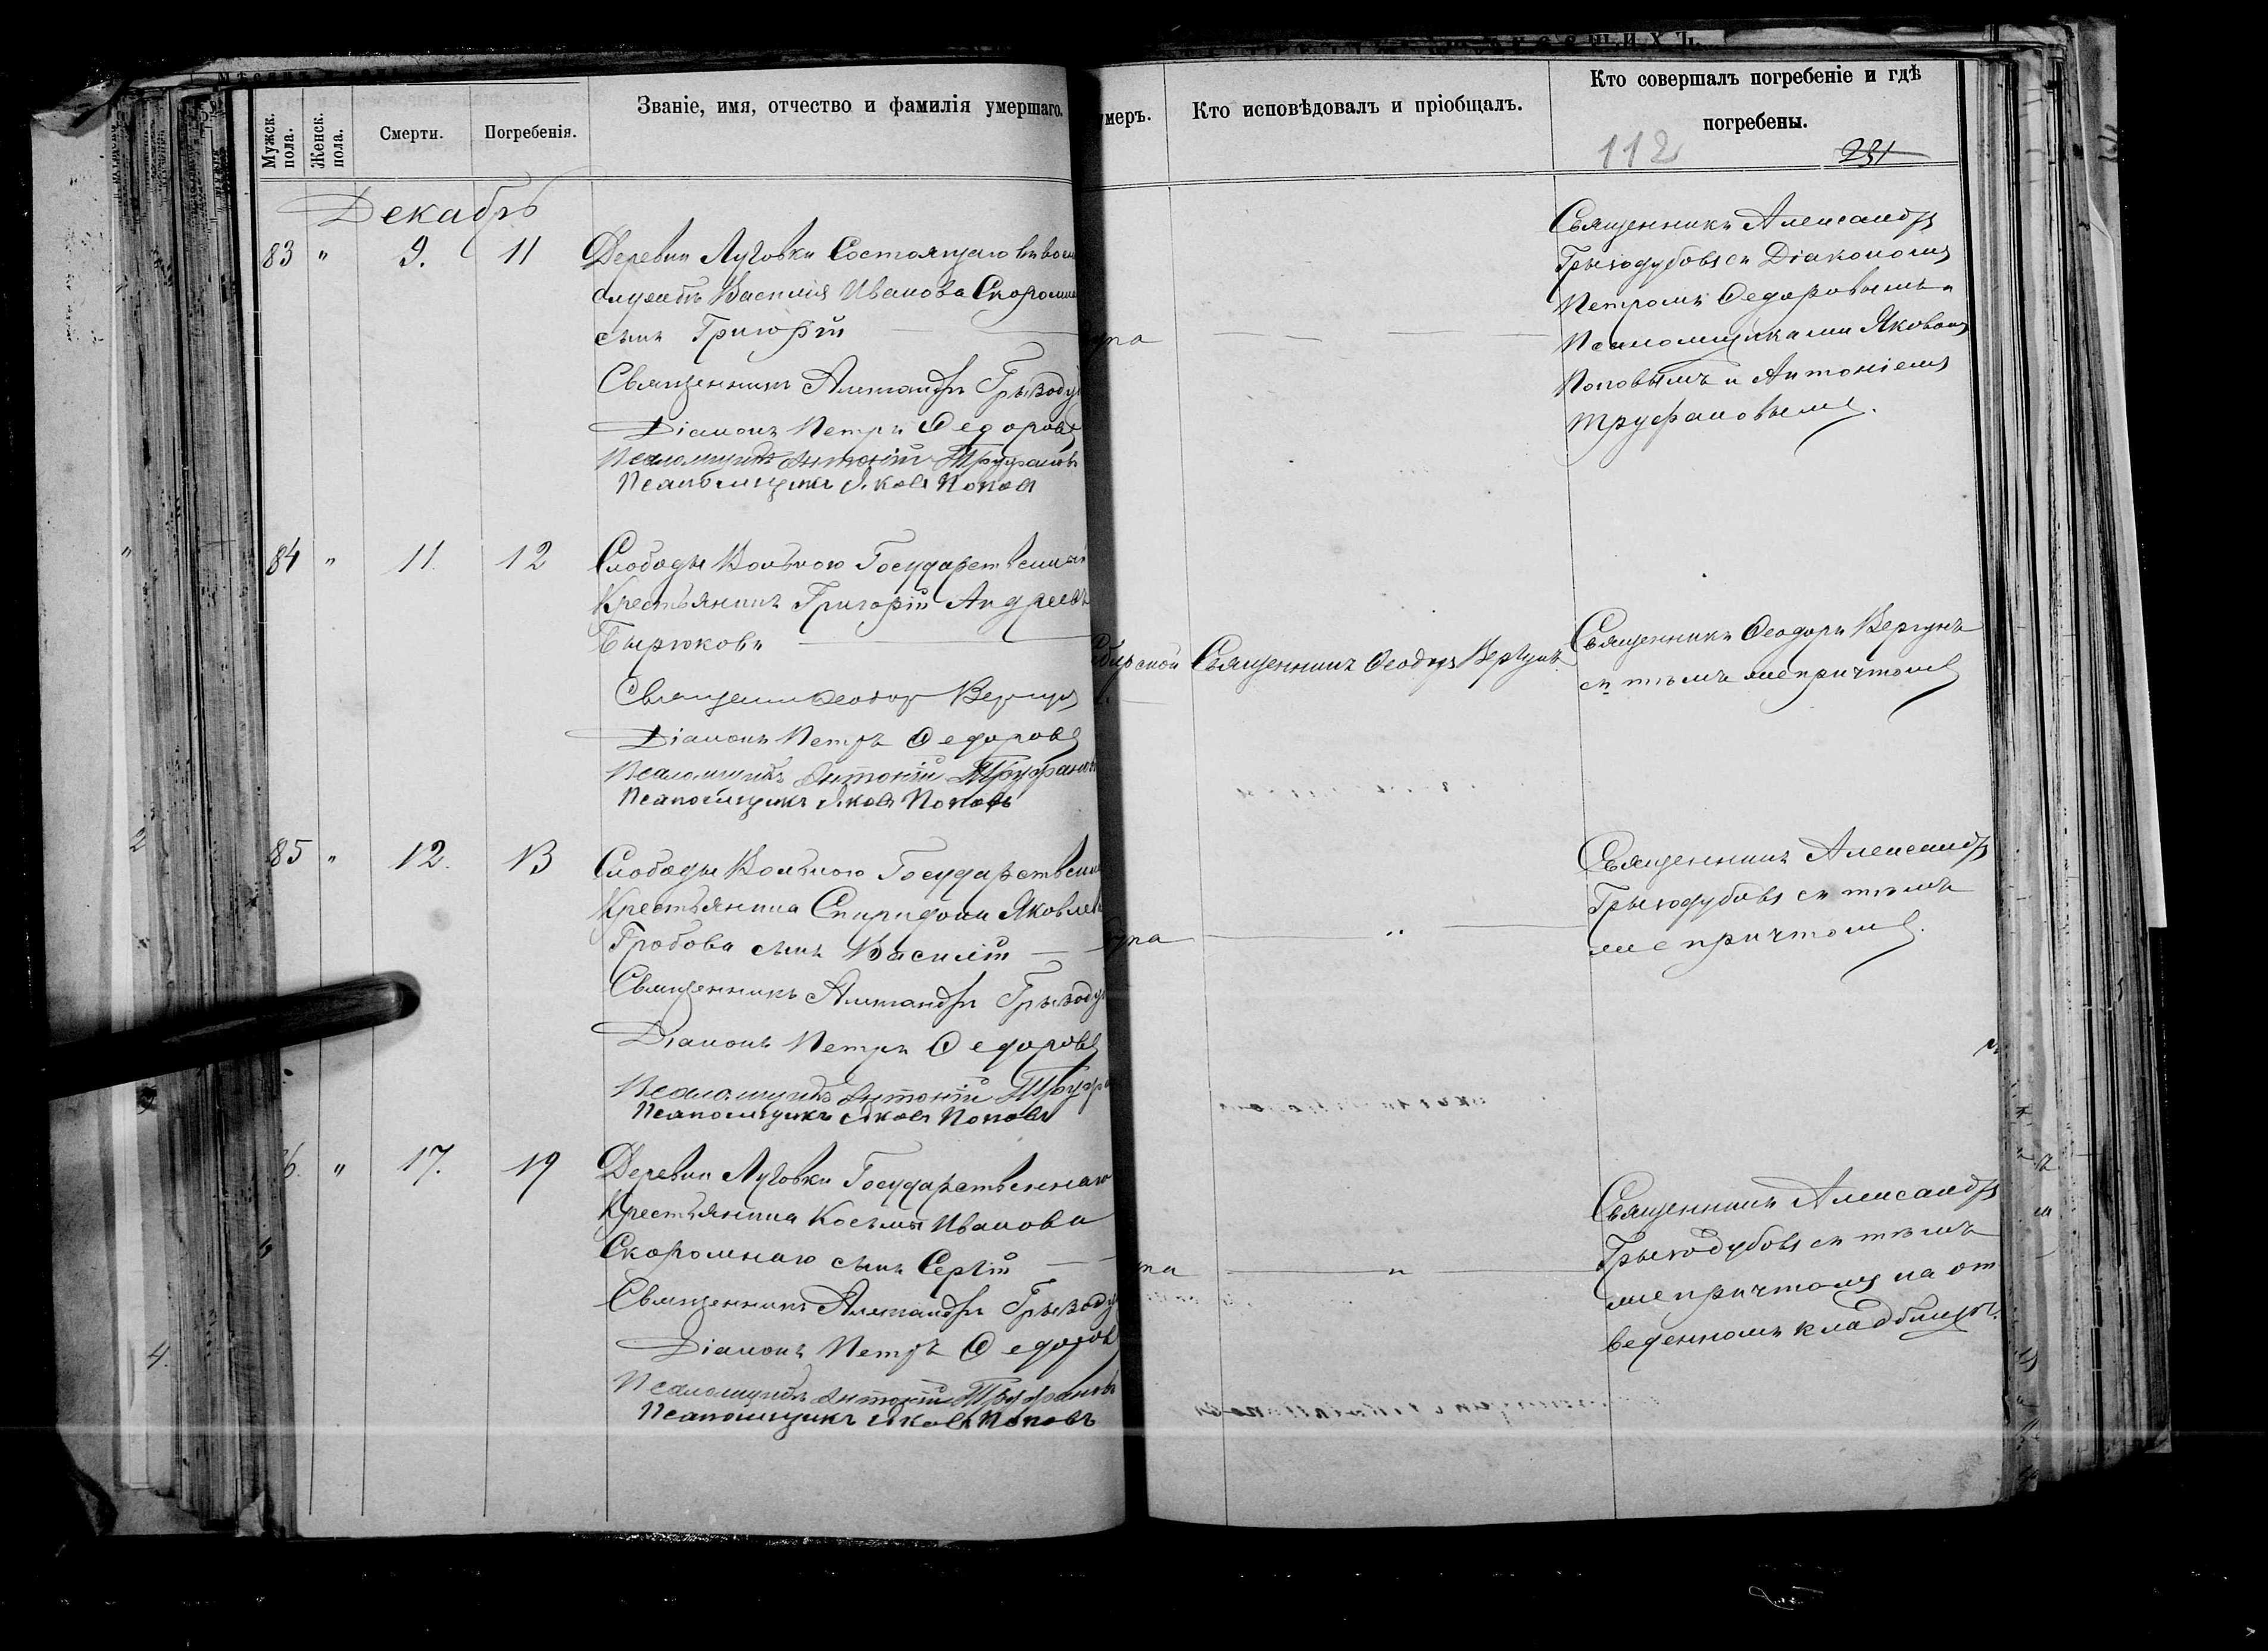 Мужск. пола.
Женск. пола.
Смерти.
Погребенія.
Званіе, имя, отчество и фамилія умершаго.
умеръ.
Кто исповѣдовалъ и пріобщалъ.
Кто совершалъ погребеніе и гдѣ
погребены.
112
231
Декабрь
83 " 9. 11 Деревни Луговки Состоящаго въ воен
службѣ Василія Иванова Скоромн
сынъ Григорій
Священникъ Александръ Грызоду
Діаконъ Петръ Ѳедоровъ
Псаломщикъ Антоній Труфановъ
Псаломщикъ Яковъ Поповъ
Священникъ Александръ
Грызодубовъ съ Діакономъ
Петромъ Ѳедоровымъ и
Псаломщиками Яковомъ
Поповымъ и Антоніемъ
Труфановымъ.
84 " 11. 12 Слободы Вольною Государственный
Крестьянинъ Григорій Андреевъ
Бирюковъ
Священникъ Ѳеодоръ Вергунъ
Діаконъ Петръ Ѳедоровъ
Псаломщикъ Антоній Труфановъ
Псаломщикъ Яковъ Поповъ
Священникъ Ѳеодоръ Вергунъ
Священникъ Ѳеодоръ Вергунъ
съ тѣмъ же причтомъ
85 " 12. 13 Слободы Вольною Государственн
Крестьянина Спиридона Яковлев
Гробова сынъ Василій
Священникъ Александръ Грызоду
Діаконъ Петръ Ѳедоровъ
Псаломщикъ Антоній Труфа
Псаломщикъ Яковъ Поповъ
Священникъ Александръ
Грызодубовъ съ тѣмъ
же причтомъ.
6. " 17. 19 Деревни Луговки Государственнаго
Крестьянина Косьмы Иванова
Скоромнаго сынъ Сергій
Священникъ Александръ Грызоду
Діаконъ Петръ Ѳедоров
Псаломщикъ Антоній Труфановъ
Псаломщикъ Яковъ Поповъ
Священникъ Александръ
Грызодубовъ съ тѣмъ
же причтомъ на от
веденномъ кладбищѣ.